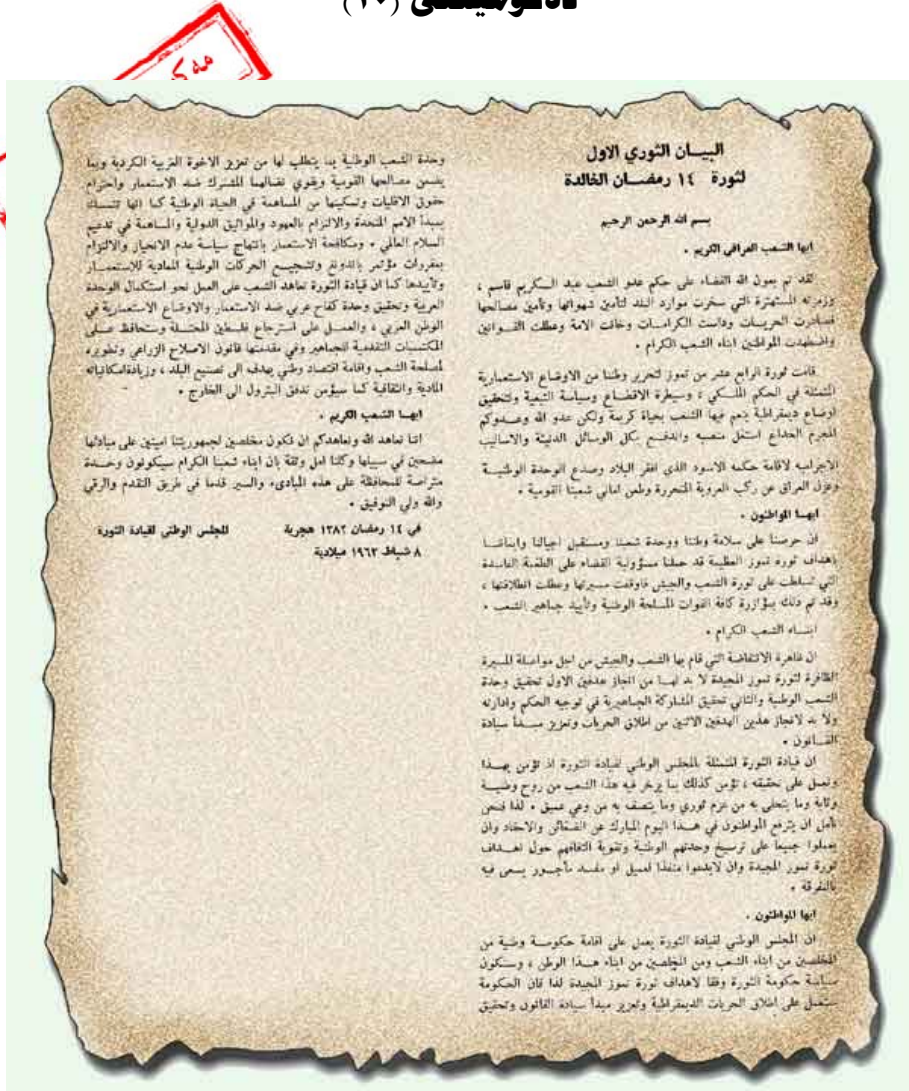 (١٠)
البيـــان الثوري الاول
لثورة ١٤ رمضـــان الخالدة
بسم الله الرحمن الرحيم
ايها الشعب العراقي الكريم .
لقد تم بعون الله القضاء على حكم عدو الشعب عبد السكريم قاسم ،
وزمرته المستهترة التي سخرت موارد البلد لتأمين شهواتها وتأمين مصالحها
فصادرت الحريـــات وداست الكرامـــات وخانت الامة وعطلت القـــوانين
واضطهدت المواطنين ابناء الشعب الكرام .
قامت ثورة الرابع عشر من تموز لتحرير وطننا من الاوضاع الاستعمارية
المتمثلة في الحكم الملـــكي ، وسيطرة الاقطـــاع وسياسة التبعية ولتحقيق
اوضاع ديمقراطية ينعم فيها الشعب بحياة كريمة ولكن عدو الله وعـــدوكم
المجرم الخداع استغل منصبه واندفـــع بكل الوسائل الدنيئة والاساليب
الاجرامية لاقامة حكمه الاسود الذي افقر البلاد وصدع الوحدة الوطنيـــة
وعزل العراق عن ركب العروبة المتحررة وطعن اماني شعبنا القومية .
ايهـــا المواطنون .
ان حرصنا على سلامة وطننا ووحدة شعبنا ومستقبل اجيالنا وايماننـــا
باهداف ثورة تموز العظيمة قد حملنا مسؤولية القضاء على الطغمة الفاسدة
التي تسلطت على ثورة الشعب والجيش فاوقفت مسيرتها وعطلت انطلاقتها ،
وقد تم ذلك بمؤازرة كافة القوات المسلحة الوطنية وتأييد جماهير الشعب .
ابنـــاء الشعب الكرام .
ان ظاهرة الانتفاضة التي قام بها الشعب والجيش من اجل مواصلة المسيرة
الظافرة لثورة تموز المجيدة لا بد لهـــا من انجاز هدفين الاول تحقيق وحدة
الشعب الوطنية والثاني تحقيق المشاركة الجماهيرية في توجيه الحكم وادارته
ولا بد لانجاز هذين الهدفين الاثنين من اطلاق الحريات وتعزيز مبـــدأ سيادة
القـــانون .
ان قيادة الثورة المتمثلة بالمجلس الوطني لقيادة الثورة اذ تؤمن بهـــذا
وتعمل على تحقيقه ، تؤمن كذلك بما يزخر فيه هذا الشعب من روح وطنيـــة
وثابة وما يتحلى به من عزم ثوري وما يتصف به من وعي عميق . لذا فنحن
نأمل ان يترفع المواطنون في هـــذا اليوم المبارك عن الضغائن والاحقاد وان
يعملوا جميعاً على ترسيخ وحدتهم الوطنية وتقوية التفافهم حول اهـــداف
ثورة تموز المجيدة وان لايدعوا منفذا لعميل او مفسد مأجـــور يسعى فيه
بالتفرقة .
ايها المواطنون .
ان المجلس الوطني لقيادة الثورة يعمل على اقامة حكومـــة وطنية من
المخلصين من ابناء الشعب ومن المخلصين من ابناء هـــذا الوطن ، وستكون
سياسة حكومة الثورة وفقا لاهداف ثورة تموز المجيدة لذا فان الحكومة
ستعمل على اطلاق الحريات الديمقراطية وتعزيز مبدأ سيادة القانون وتحقيق
وحدة الشعب الوطنية بما يتطلب لها من تعزيز الاخوة العربية الكردية وبما
يضمن مصالحها القومية ويقوي نضالهما المشترك ضد الاستعمار واحترام
حقوق الاقليات وتمكينها من المساهمة في الحياة الوطنية كما انها تتمسك
بمبدأ الامم المتحدة والالتزام بالعهود والمواثيق الدولية والمساهمة في تدعيم
السلام العالمي . ومكافحة الاستعمار بانتهاج سياسة عدم الانحياز والالتزام
بمقررات مؤتمر باندونغ وتشجيـــع الحركات الوطنية المعادية للاستعمـــار
وتأييدها كما ان قيادة الثورة تعاهد الشعب على العمل نحو استكمال الوحدة
العربية وتحقيق وحدة كفاح عربي ضد الاستعمار والاوضاع الاستعمارية في
الوطن العربي ، والعمـــل على استرجاع فلسطين المحتـــلة وستحافظ عـــلى
المكتسبات التقدمية للجماهير وفي مقدمتها قانون الاصلاح الزراعي وتطويره
لمصلحة الشعب واقامة اقتصاد وطني يهدف الى تصنيع البلد ، وزيادةامكانياته
المادية والثقافية كما سيؤمن تدفق البترول الى الخارج .
ايهـــا الشعب الكريم .
اننا نعاهد الله ونعاهدكم ان نكون مخلصين لجمهوريتنا امينين على مبادئها
مضحين في سبيلها وكلنا امل وثقة بان ابناء شعبنا الكرام سيكونون وحـــدة
متراصة للمحافظة على هذه المبادىء والسير قدما في طريق التقدم والرقي
والله ولي التوفيق .
في ١٤ رمضان ١٣٨٢ هجرية المجلس الوطني لقيادة الثورة
٨ شباط ١٩٦٣ ميلادية